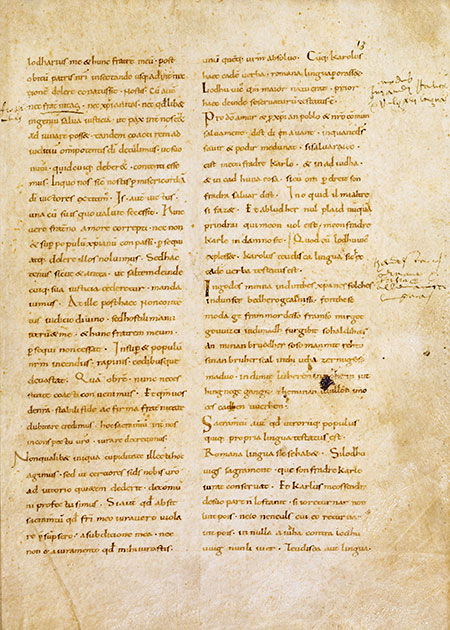 13
lodharius me & hunc fratrē meū · post
obitū patris nr̄i insectando usq; ad int&ne
tionē delere conatus sit · nostis · Cū autē
nec fraternitas · nec xp̄ianitas · nec qd̄libet
ingeniū salva iusticia · ut pax int̄ nos e&
adiuvare poss& · tandem coacti rem ad
iuditiū omnipotentis dī detulimus · ut suo
nutu quid cuiq; deber& · contenti esse
mus · In quo nos sic nostis p misericordiā
dī victores extitim; · Is autē victus
una cū suis quo valuit secessit · Hinc
vero fraterno amore correpti · nec non
& sup populū xp̄ianū con passi · p sequi
atq; delere illos noluimus · Sed hac
tenus sicut & antea · ut saltē deinde
cuiq; sua iusticia ceder&ur · manda
vimus · At ille post haec non conten
tus iudicio divino · sed hostili manu
iterū & me · & hunc fratrem meum
p sequi non cessat · Insup & populū
nr̄m incendiis · rapinis · cedibusq;
devastat · Quā ob rē · nunc neces
sitate coacti con venimus · & qm̄ vos
de nr̄a stabili fide ac firma fraternitate
dubitare credimus · hoc sacramentū int̄ nos
in conspectu vr̄o · iurare decrevimus ·
Non qualibet iniqua cupiditate illecti hoc
agimus · sed ut certiores si dš nobis vr̄o
ad iutorio quietem dederit · de comu
ni profectu simus · Si autē qd̄ absit
sacramtū qd̄ fr̄i meo iuravero viola
re p sūpsero · a subditione mea · nec
non & a iuramento qd̄ mihi iurastis ·
unū quēq; vr̄m absolvo · Cūq; karolus
haec eadē verba · romana lingua porasset ·
Lodhuuic qm̄ maior natu erat · prior
haec deinde se servaturū testatus ē ·
Pro dō amur & p xp̄ian poblo & nr̄o comun
salvament · dist di en avant · inquant dš
savir & podir me dunat · si salvarai eo ·
cist meon fradre karlo · & in aiudha
& in cad huna cosa · si cū om p dreit son
fradra salvar dist · In o quid il mi altre
si faz& · Et ab ludher nul plaid nūquā
prindrai qui meon vol cist · meon fradre
karle in damno sit · Quod cū lodhuvic
explesset · karolus teudisca lingua sic ec
eadē verba testatus est ·
In godes minna indinthes xpānes folches
indunser bedhero gealtnissi · fonthese
moda ge frammordesso framso mirgot
geuuizci indimadh furgibit so haldihtes
an minan bruodher soso man mit rehtu
sinan bruher scal inthi utha zer mig soso
maduo · indimit luheren in no theiniut
hing nege gango · the minan uuillon imo
ces cadhen uuerhen ·
Sacramtū autē qd̄ utrorūq; populus
quiq; propria lingua testatus est ·
Romana lingua sic se habet · Si lodhu
uigs sagrament · que son fradre karlo
iurat conservat · Et karlus meossendra
desuo part n lostanit · si io returnar non
lint pois · ne io ne neuls cui eo returnar
int pois · in nulla aiudha contra lodhu
uuig nunli iuer · Teudisca autē lingua